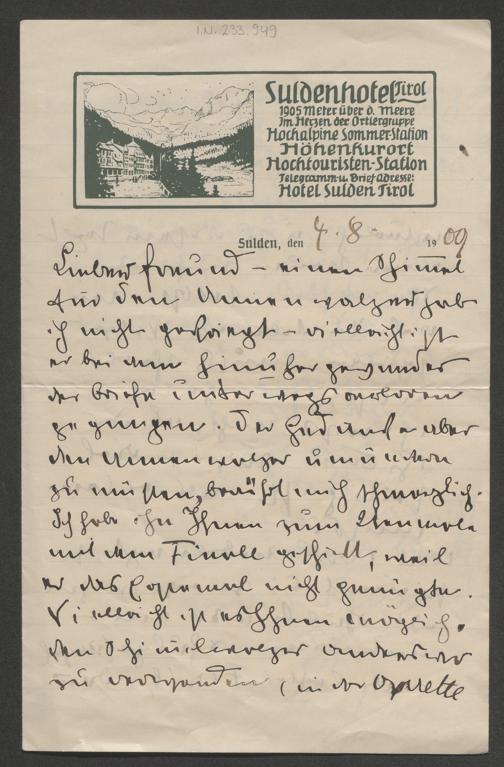 I.N. 233.949
Suldenhotel Tirol
1905 Meter über d. Meere
Im Herzen der Ortlergruppe
Hochalpine Sommer-Station
Höhenkurort
Hochtouristen-Station
Telegramm- u. Brief-Adresse:
Hotel Sulden Tirol
Sulden, den 4. 8. 1909
Lieber Freund – einen Schimmel
für den Annenwalzer hab
ich nicht – vielleicht ist
er bei dem
der Briefe unterwegs verloren
gegangen. Der Gedanke aber
den Annenwalzer
zu müssen, berührt mich schmerzlich.
Ich habe ihn Ihnen zum
mit dem Finale geschickt, weil
er das nicht genügte.
Vielleicht ist es Ihnen möglich,
den anderswo
zu verwenden (in der Operette